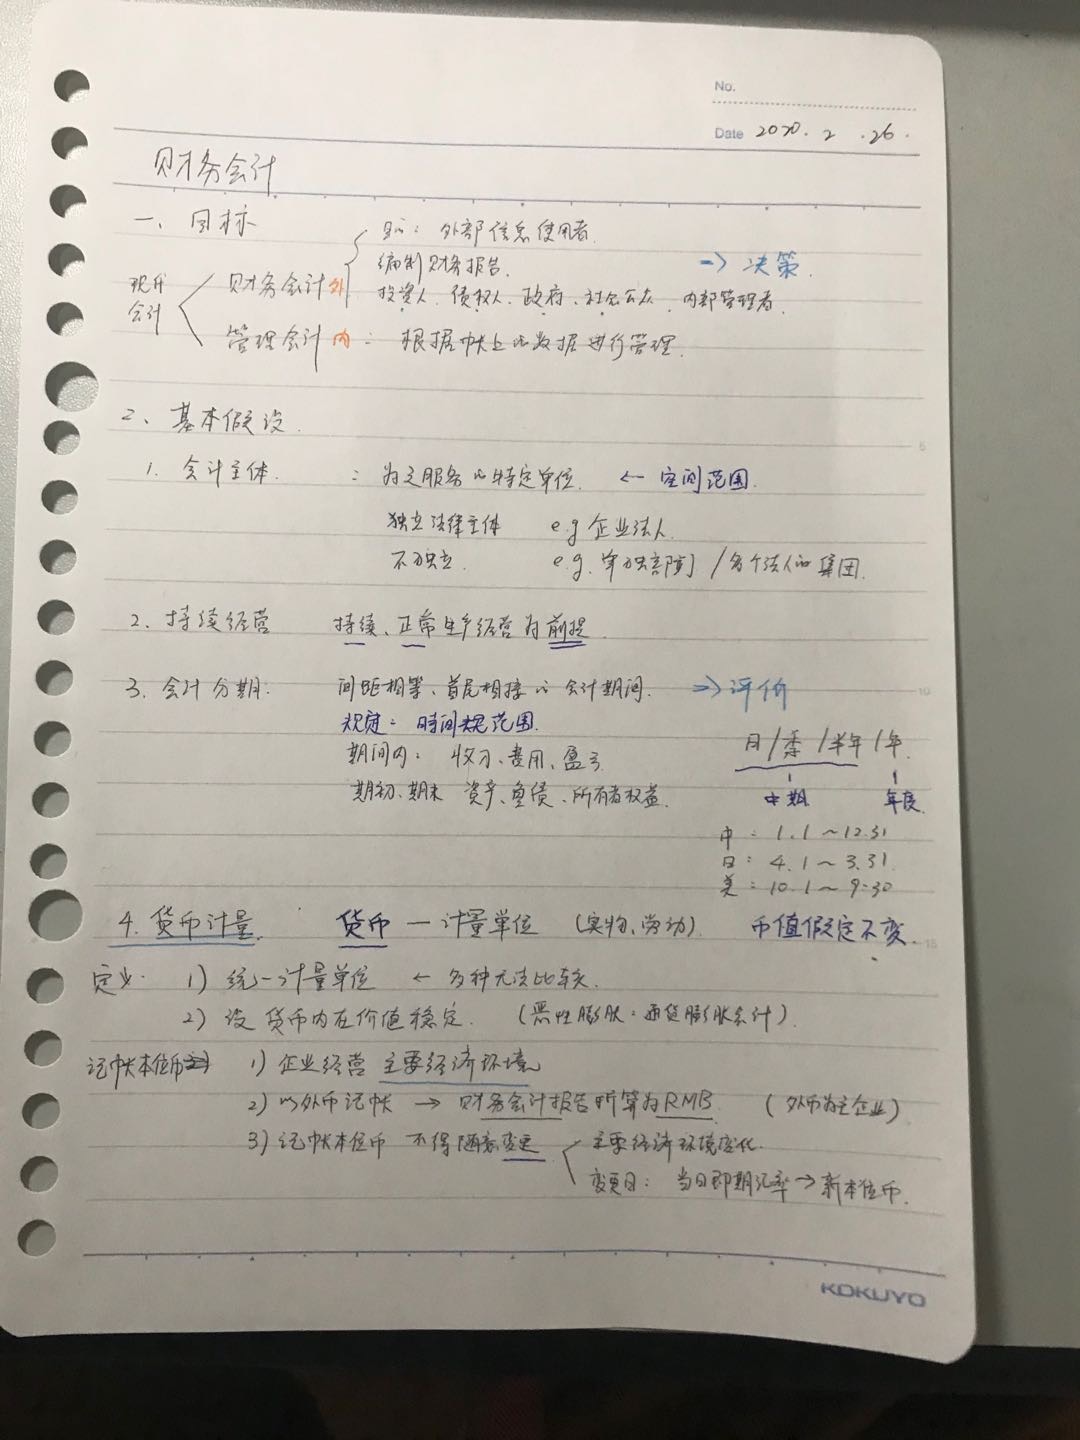 No.
Date 2020.2.26.
财务会计
一、目标
现代会计
财务会计 外
外部信息使用者
编制财务报告.
投资人、债权人、政府、社会公众、内部管理者.
=> 决策.
管理会计 内: 根据帐上的数据进行管理.
2、基本假设.
1. 会计主体. : 为之服务的特定单位. ← 空间范围.
独立法律主体 e.g 企业法人.
不独立. e.g. 单独部门/多个法人的集团.
2. 持续经营 持续、正常生产经营为前提.
3. 会计分期: 间距相等、首尾相接的会计期间. => 评价
规定: 时间范围.
月/季/半年/年.
期间内: 收入、费用、盈亏
期初、期末 资产、负债、所有者权益.
中期 年度.
中: 1.1~12.31
日: 4.1~3.31.
美: 10.1~9.30
4. 货币计量. 货币一计量单位 (实物、劳动). 币值假定不变.
定义. 1) 统一计量单位 ← 多种无法比较.
2) 设货币内在价值稳定. (恶性膨胀: 通货膨胀会计).
记帐本位币 1) 企业经营主要经济环境
2) 以外币记帐 → 财务会计报告折算为RMB. (外币为主企业)
3) 记帐本位币 不得随意变更
主要经济环境变化.
变更日: 当日即期汇率→新本位币.
KOKUYO
5
10
15